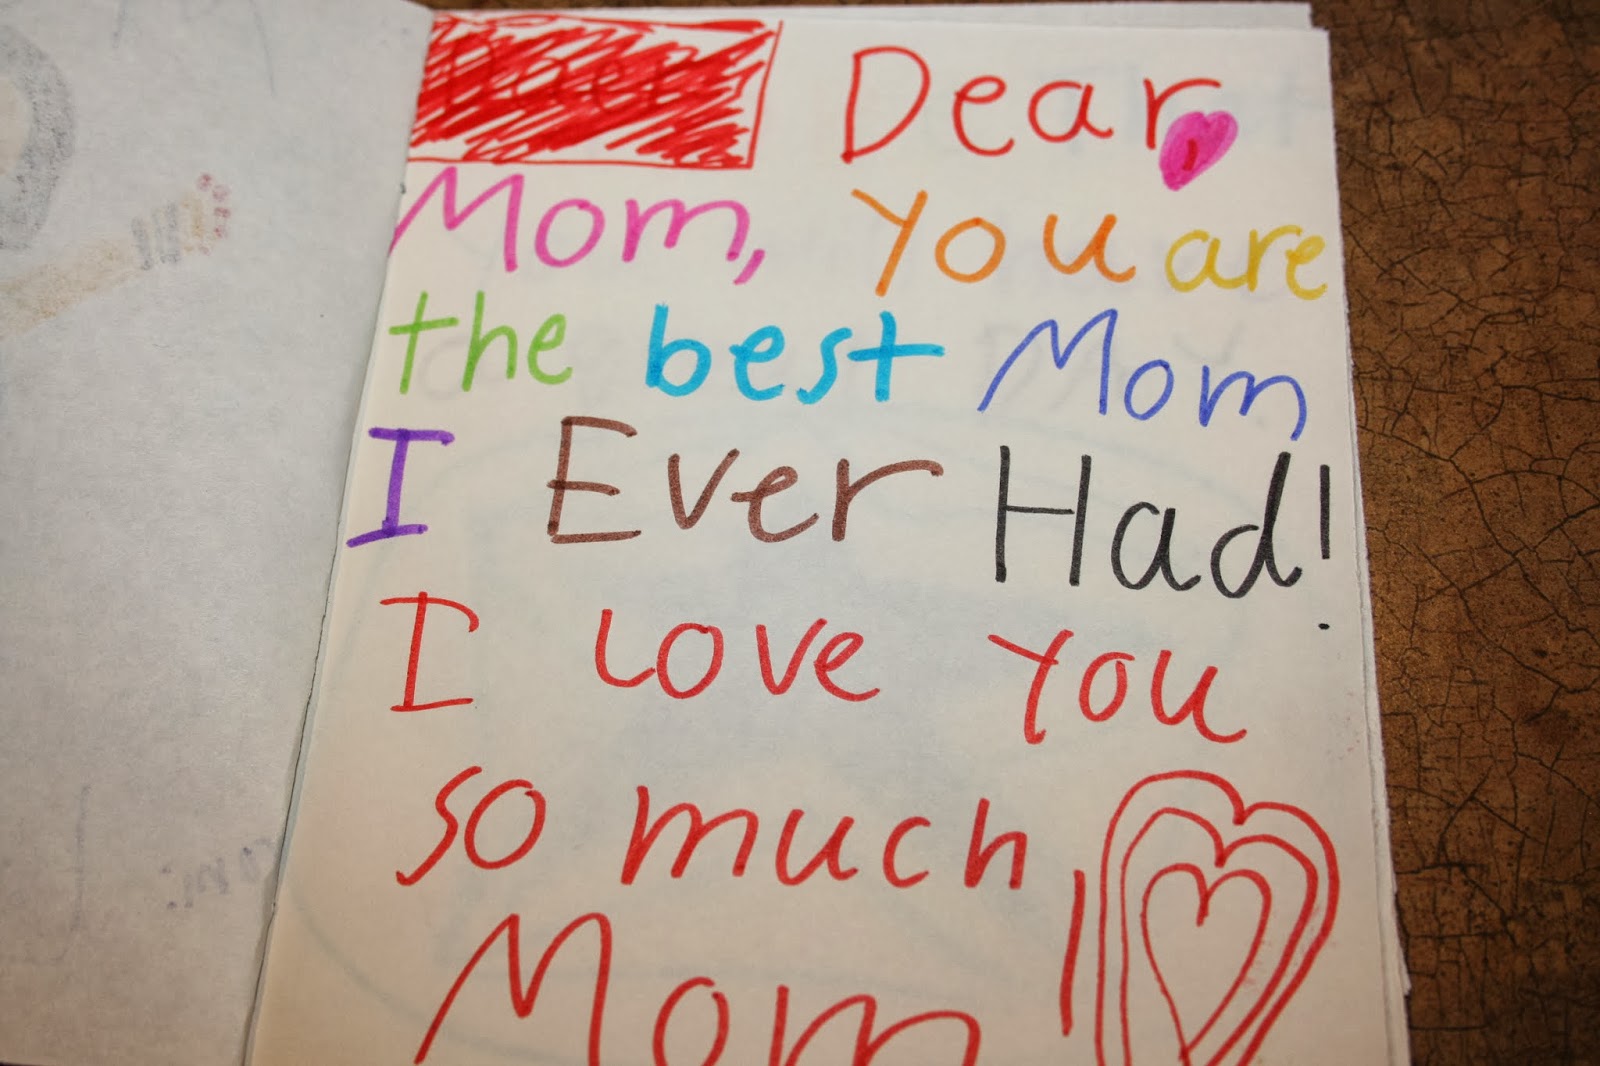 Dear,
Mom, You are
the best Mom
I Ever Had!
I love You
so much
Mom